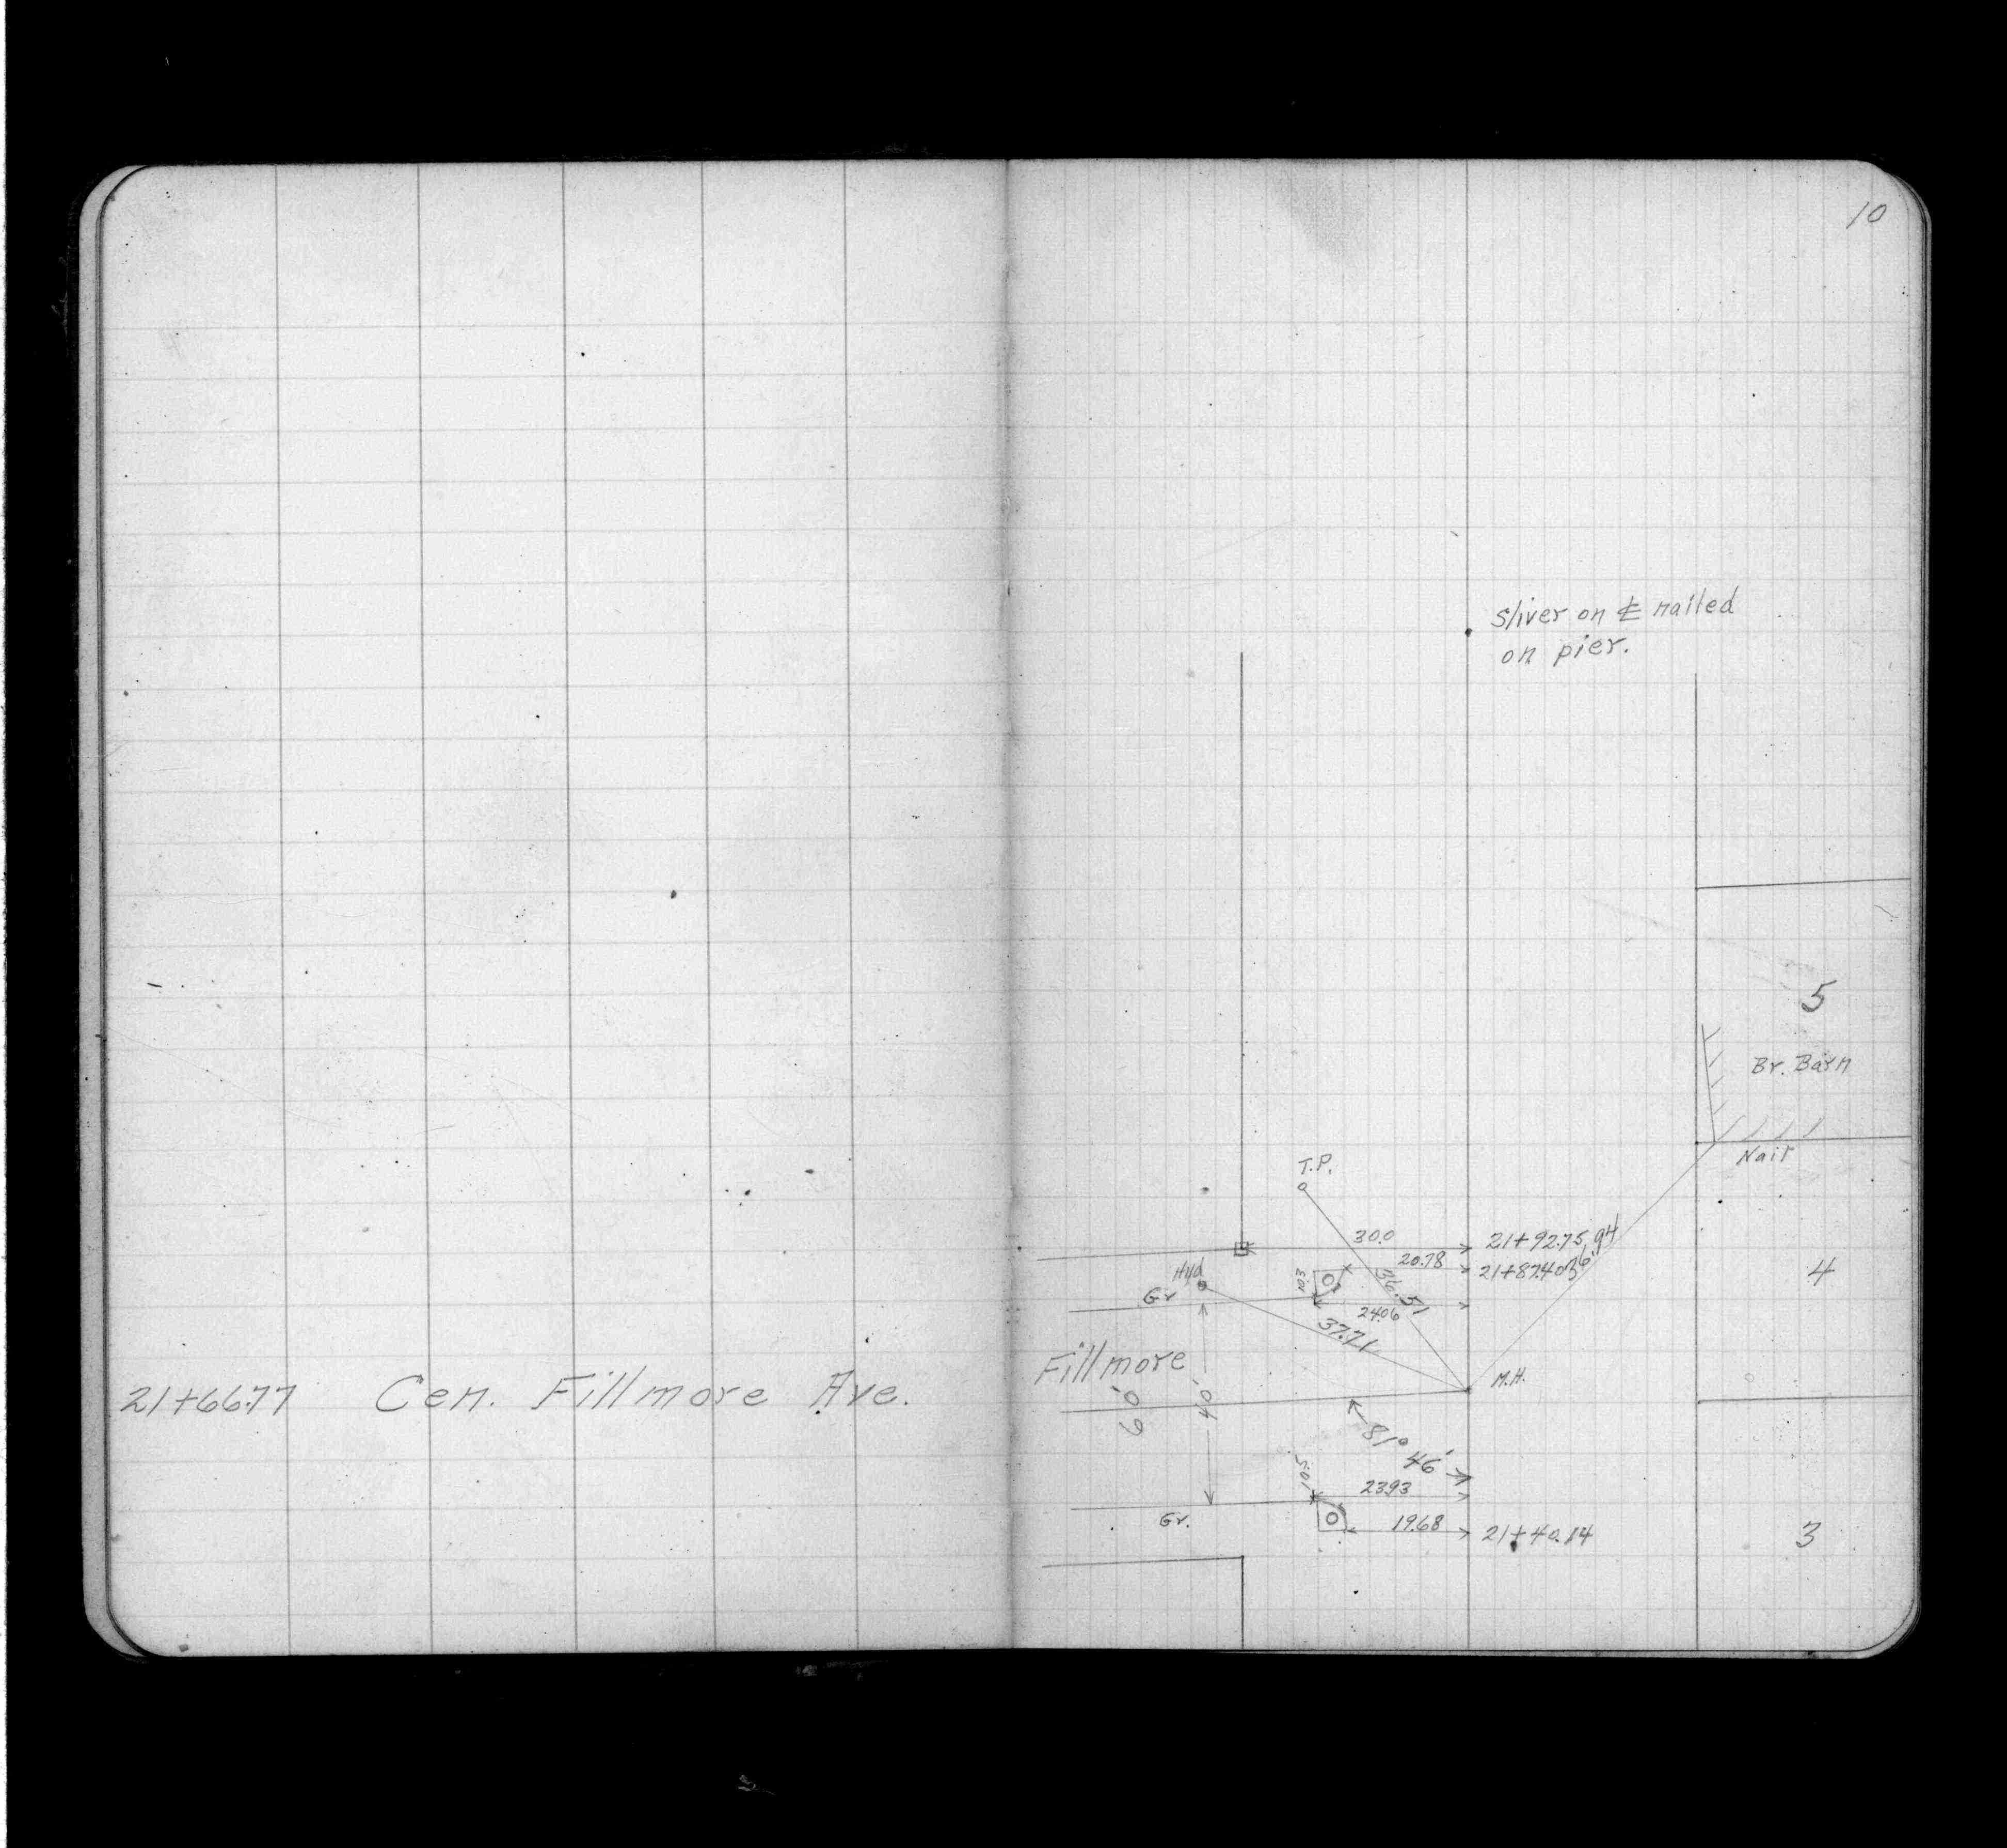 10
Sliver on ℄ nailed
on pier.
5
Br. Barn
Nail
T.P.
30.0
21+92.75
20.78
21+87.40
36.51
Hyd
Gr
24.06
37.71
4
Fillmore
M.H.
21+66.77 Cen. Fillmore Ave.
60'
40'
81° 46'
23.93
Gr.
19.68
21+40.14
3